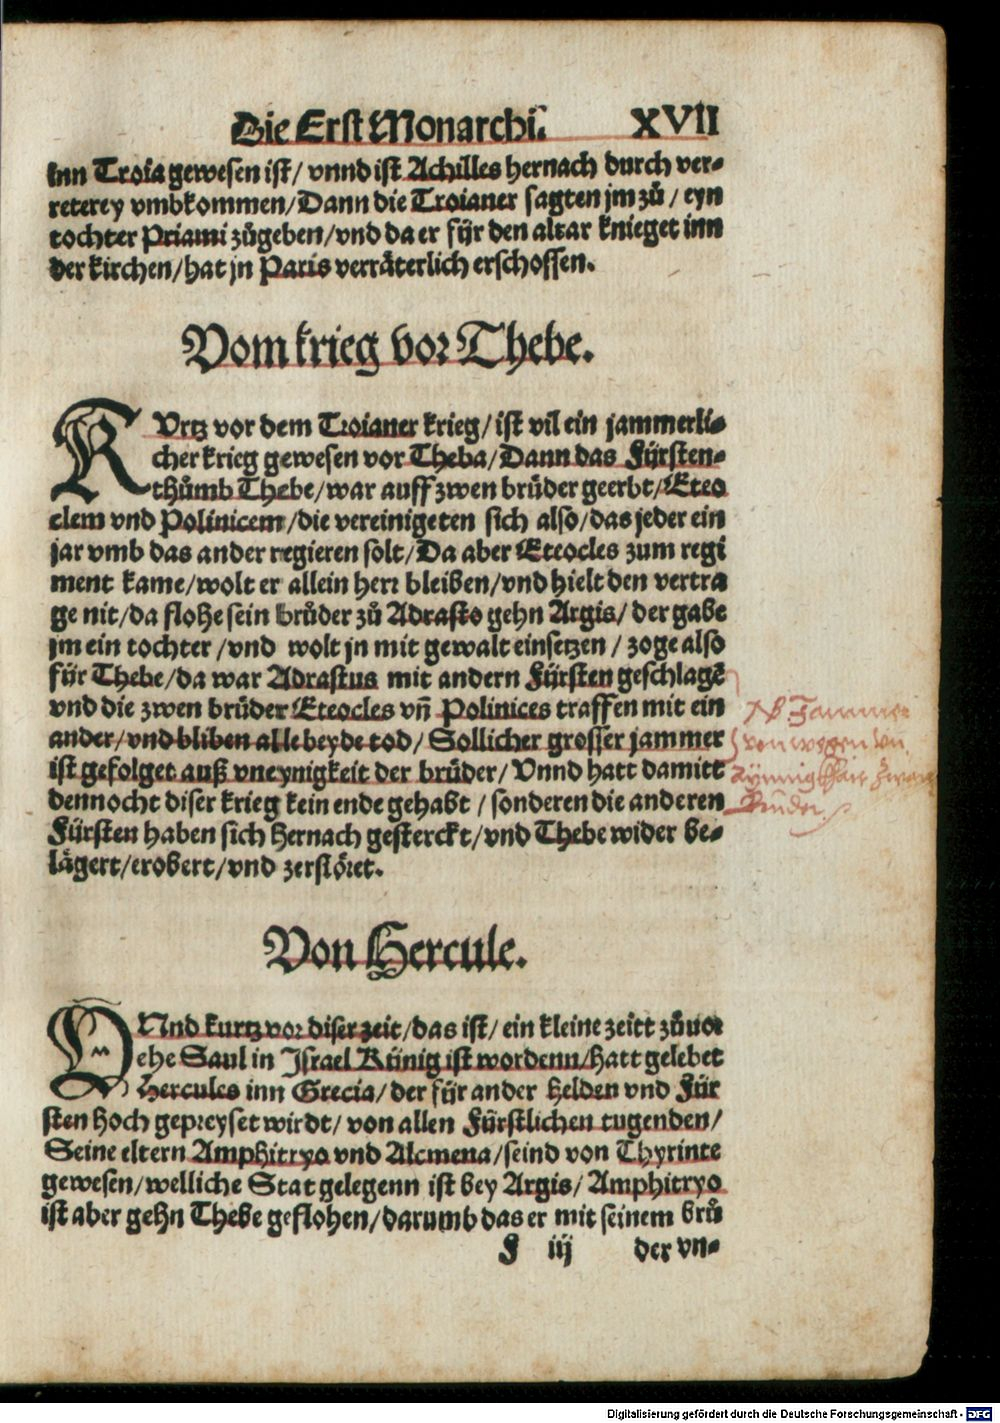 Die Erst Monarchi. XVII
inn Troia gewesen ist/ vnnd ist Achilles hernach durch ver-
reterey vmbkommen/Dann die Troianer sagten jm zů/ eyn
tochter Priami zůgeben/vnd da er für den altar knieget inn
der kirchen/hat jn Paris verräterlich erschossen.
Vom krieg vor Thebe.
KVrtz vor dem Troianer krieg/ist vil ein jammerli-
cher krieg gewesen vor Theba/Dann das Fürsten-
thůmb Thebe/war auff zwen brüder geerbt/Eteo
clem vnd Polinicem/die vereinigeten sich also/das jeder ein
jar vmb das ander regieren solt/Da aber Eteocles zum regi
ment kame/wolt er allein herr bleiben/vnd hielt den vertra
ge nit/da flohe sein brůder zů Adrasto gehn Argis/ der gabe
jm ein tochter/vnd wolt jn mit gewalt einsetzen/ zoge also
für Thebe/da war Adrastus mit andern Fürsten geschlagē
vnd die zwen brüder Eteocles vñ Polinices traffen mit ein
ander/vnd bliben alle beyde tod/Sollicher grosser jammer
ist gefolget auß vneynigkeit der brüder/Vnnd hatt damitt
dennocht diser krieg kein ende gehabt/sonderen die anderen
Fürsten haben sich hernach gesterckt/vnd Thebe wider be-
lägert/erobert/vnd zerstöret.
NB Jammer
von wegen vn
aynnigkhait zwayer
Brüder.
Von Hercule.
VNnd kurtz vor diser zeit/das ist/ein kleine zeitt zůuor
ehe Saul in Israel Künig ist wordenn/hatt gelebet
Hercules inn Grecia/der für ander helden vnd Für
sten hoch gepreyset wirdt/von allen Fürstlichen tugenden/
Seine eltern Amphitryo vnd Alcmena/seind von Thyrinte
gewesen/welliche Stat gelegenn ist bey Argis/Amphitryo
ist aber gehn Thebe geflohen/darumb das er mit seinem brů
F iij der vn-
Digitalisierung gefördert durch die Deutsche Forschungsgemeinschaft - DFG